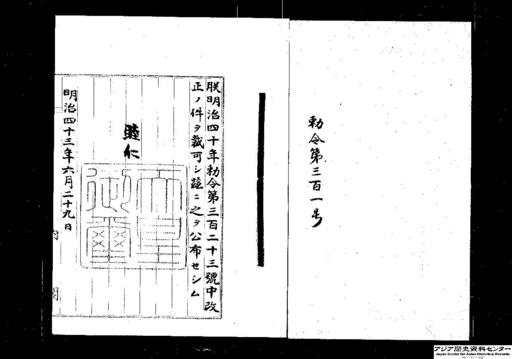 勅令第三百一号
朕明治四十年勅令第三百二十三號中改
正ノ件ヲ裁可シ茲ニ之ヲ公布セシム
睦仁
天皇
御璽
明治四十三年六月二十九日
内閣
アジア歴史資料センター
Japan Center for Asian Historical Records